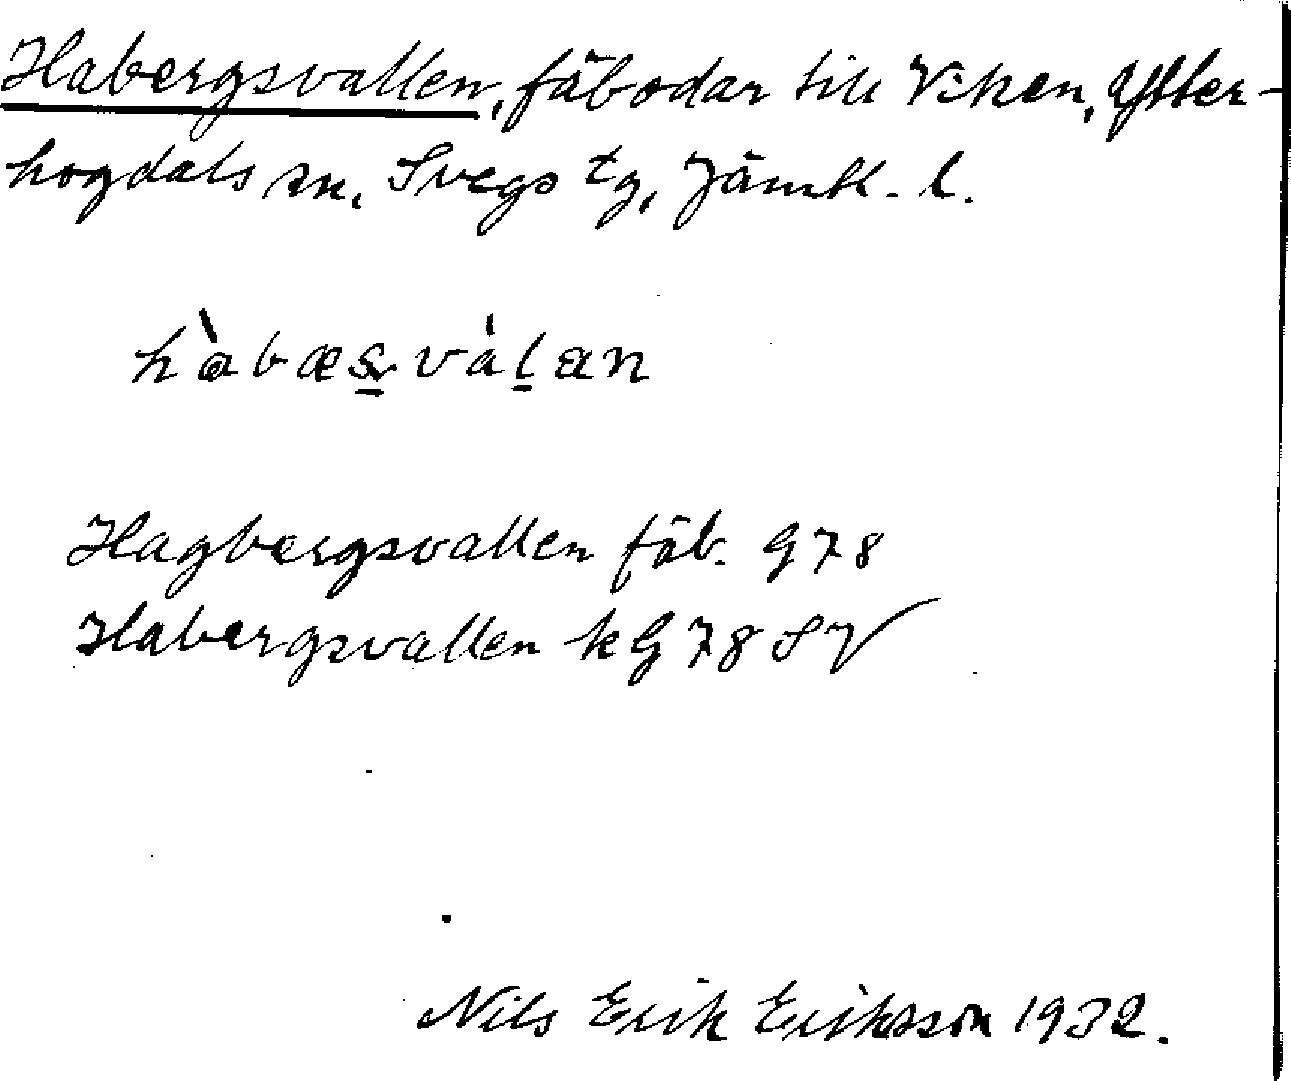 Habergsvallen, fäbodar till Viken, Ytter-
hogdals sn, Svegs tg, Jämtl. l.
hàbæs̠vàl̠an
Hagbergsvallen fäb. G 78
Habergsvallen k G 78 SV
Nils Erik Eriksson 1932.